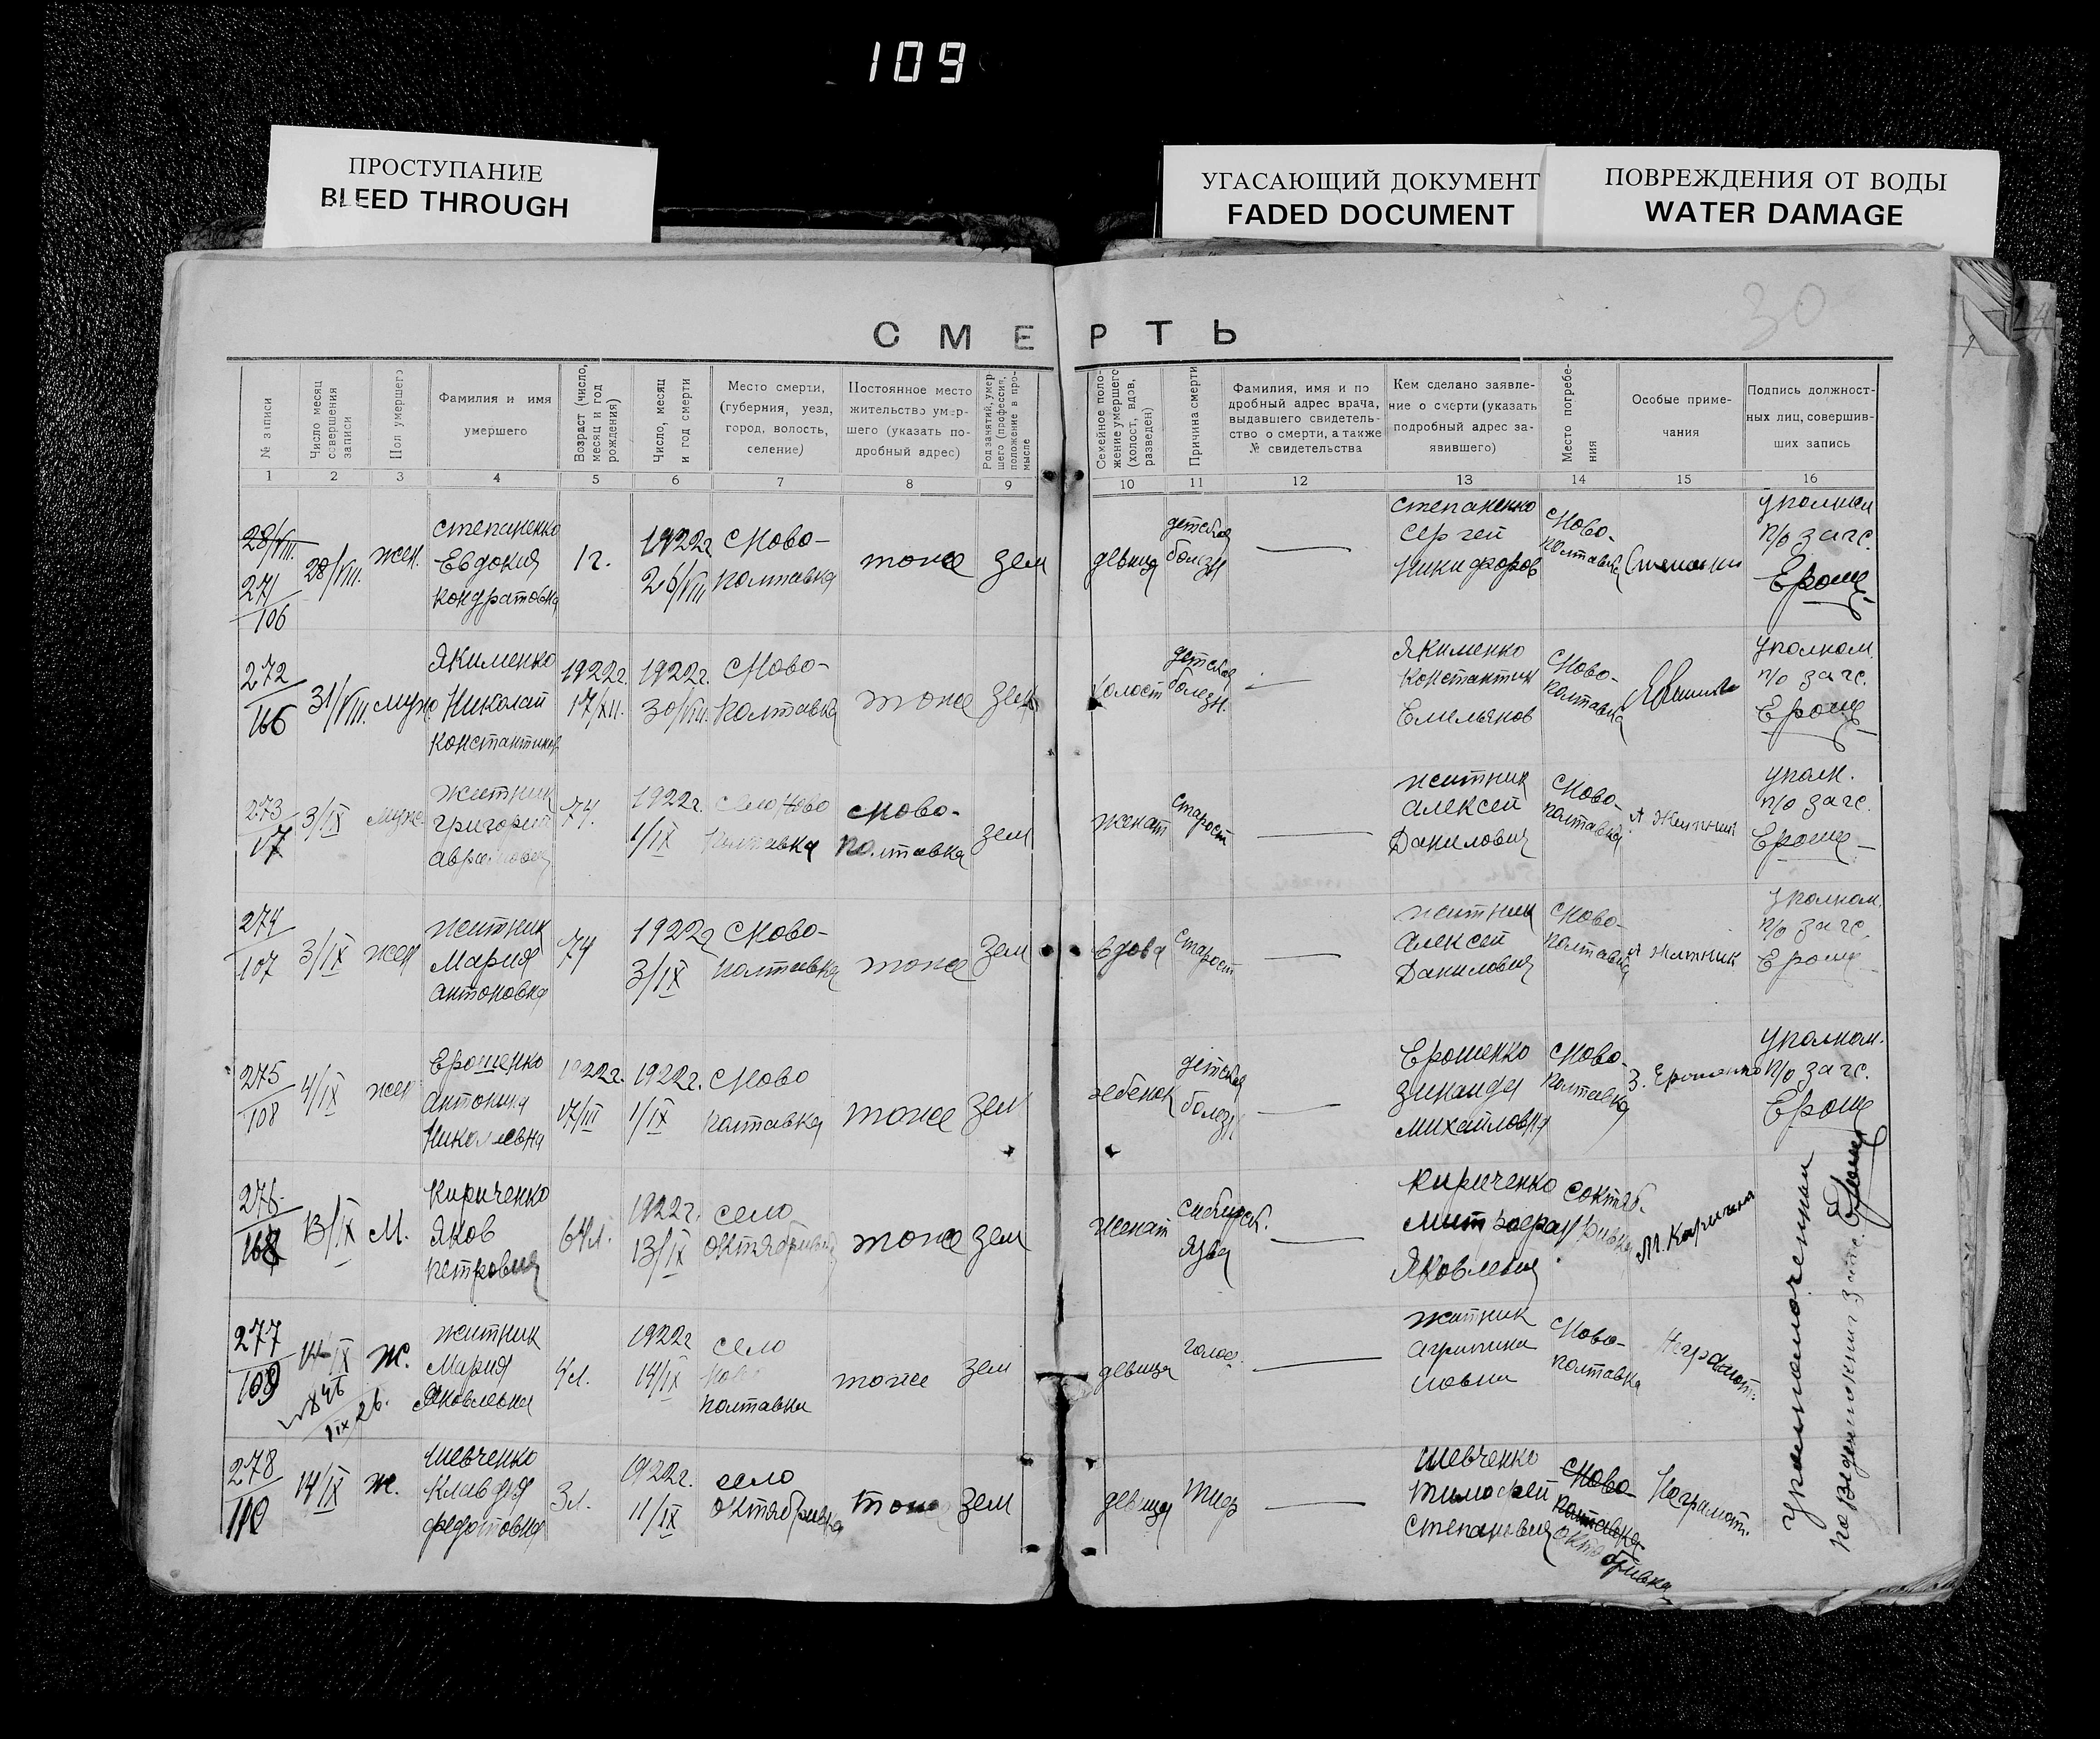 109
ПРОСТУПАНИЕ
BLEED THROUGH
УГАСАЮЩИЙ ДОКУМЕНТ
FADED DOCUMENT
ПОВРЕЖДЕНИЯ ОТ ВОДЫ
WATER DAMAGE
30
СМЕРТЬ
№ записи
Число месяц
совершения
записи
Пол умершего
Фамилия и имя
умершего
Возраст (число,
месяц и год
рождения)
Число, месяц
и год смерти
Место смерти,
(губерния, уезд,
город, волость,
селение)
Постоянное место
жительство умер-
шего (указать по-
дробный адрес)
Род занятий, умер-
шего (профессия,
положение в про-
мысле
Семейное поло-
жение умершего
(холост, вдов,
разведен)
Причина смерти
Фамилия, имя и по
дробный адрес врача,
выдавшего свидетель-
ство о смерти, а также
№ свидетельства
Кем сделано заявле-
ние о смерти (указать
подробный адрес за-
явившего)
Место погребе-
ния
Особые приме-
чания
Подпись должност-
ных лиц, совершив-
ших запись
1 2 3 4 5 6 7 8 9 10 11 12 13 14 15 16
28/VIII.
271
106
28/VIII.
жен.
степаненко
Евдокия
кондратовна
1г.
1922г
26/VIII
Ново-
полтавка
тоже
зем
девица
детская
болезн
—
степаненко
Сергей
Никифоров
Ново-
полтавка
п/о загс.
Ерош
272
166
31/VIII.
муж
Якименко
Николай
константинов
1922г.
17/XII.
1922г.
30/VIII.
Ново-
полтавка
тоже
зем
холост
детская
болезн.
—
Якименко
Константин
Емельянов
Ново-
полтавка
уполном.
п/о загс.
Ерош
273
17
3/IX
муж
житник
григорий
74.
1922г.
1/IX
село Ново
полтавка
Ново-
полтавка
зем
женат
старост
—
житник
алексей
Данилович
Ново-
полтавка
А Житник
уполн.
п/о загс.
Ерош
274
107
3/IX
жен
житник
Мария
антоновна
74
1922г
3/IX
Ново-
полтавка
тоже
зем
вдова
старост
—
житник
алексей
Данилович
Ново-
полтавка
А Житник
уполном.
п/о загс.
Ерош
275
108
4/IX
жен
Ерошенко
антонина
Николаевна
1922г.
17/III
1922г.
1/IX
Ново
полтавка
тоже
зем
ребёнок
детская
болезн
—
Ерошенко
Зинаида
михайловна
Ново-
полтавка
З. Ерошенко
уполном.
п/о загс.
Ерош
276
168
13/IX
М.
Кириченко
Яков
петрович
64л.
1922г.
13/IX
село
тоже
зем
женат
сибирск.
язва
—
Кириченко
Митрофан
Яковлевич
277
109
14/IX
ж.
житник
Мария
Яковлевна
4л.
1922г
14/IX
село
Ново
полтавка
тоже
зем
девица
голод.
—
житник
Ново-
полтавка
Неграмот.
278
110
14/IX
ж.
шевченко
клавдия
федотовна
3л.
1922г.
11/IX
село
тоже
зем
девица
тиф
—
шевченко
тимофей
Степанович
Ново-
полтавка
Неграмот.
уполномоченный
Ерош